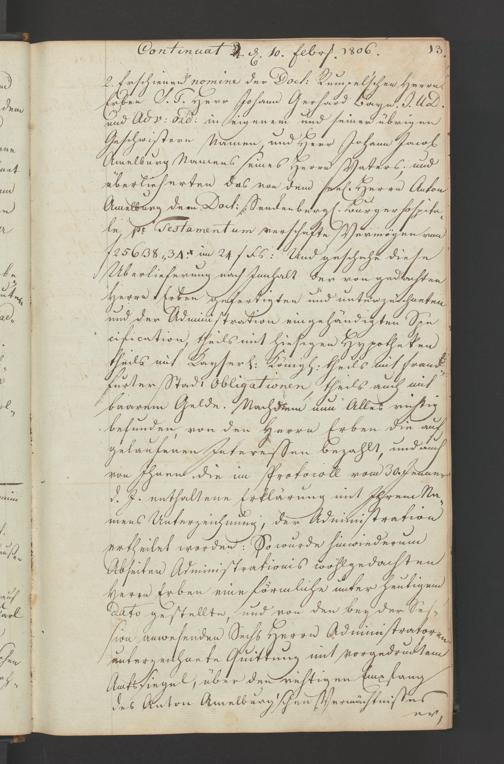 Continuat d. 10. Febr. 1806. 13.
2. Erschienen nomine der Doct. Rumpelschen Herrn
Erben S. T. Herr Johann Gerhard Bayn J.U.D.
und Adv: ord: in eigenem und seiner übrigen
Geschwistern Namen, und Herr Johann Jacob
Amelburg Namens seines Herrn Vaters, und
überlieferten das von dem seel. Herrn Anton
Amelburg dem Doct: Senckenbergl. Burgerhospita-
le per Testamentum verschafte Vermögen von
f 25638,,34x im 24 f Fs: Und geschahe diese
Überlieferung nach Innhalt der von gedachten
Herrn Erben gefertigten und unterzeichneten
und der Administration eingehändigten Spe-
cification, theils mit hiesigen Hypotheken
theils mit Kayserl: Königl: theils mit Franck-
furter Stadt Obligationen, theils auch mit
baarem Gelde. Nachdem nun Alles richtig
befunden, von den Herrn Erben die auf-
gelaufenen Interessen bezahlt, und auch
von Ihnen die im Protocoll vom 30. Jenner
d. J. enthaltene Erklärung mit Ihrem Na-
mens Unterzeichnung, der Administration
ertheilet worden: So wurde hinwiederum
Abseiten Administrationis wohlgedachten
Herrn Erben eine förmliche unter heutigem
dato gestellte, und von den bey der Ses-
sion anwesenden Sechs Herrn Administratoren
unterzeichnete Quittung mit vorgedrucktem
Amtssiegel, über den richtigen Empfang
des Anton Amelburg'schen Vermächtnisses
er,